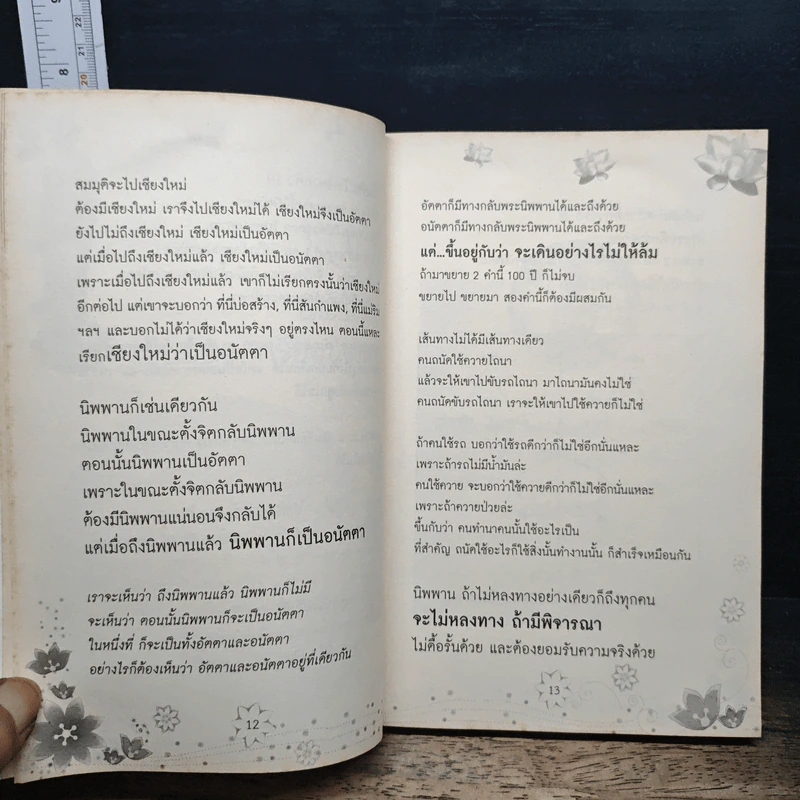 9
8
22
21
20
สมมุติจะไปเชียงใหม่
ต้องมีเชียงใหม่ เราจึงไปเชียงใหม่ได้ เชียงใหม่จึงเป็นอัตตา
ยังไปไม่ถึงเชียงใหม่ เชียงใหม่เป็นอัตตา
แต่เมื่อไปถึงเชียงใหม่แล้ว เชียงใหม่เป็นอนัตตา
เพราะเมื่อไปถึงเชียงใหม่แล้ว เขาก็ไม่เรียกตรงนั้นว่าเชียงใหม่
อีกต่อไป แต่เขาจะบอกว่า ที่นี่บ่อสร้าง, ที่นี่สันกำแพง, ที่นี่แม่ริม
ฯลฯ และบอกไม่ได้ว่าเชียงใหม่จริงๆ อยู่ตรงไหน ตอนนี้แหละ
เรียกเชียงใหม่ว่าเป็นอนัตตา
นิพพานก็เช่นเดียวกัน
นิพพานในขณะตั้งจิตกลับนิพพาน
ตอนนั้นนิพพานเป็นอัตตา
เพราะในขณะตั้งจิตกลับนิพพาน
ต้องมีนิพพานแน่นอนจึงกลับได้
แต่เมื่อถึงนิพพานแล้ว นิพพานก็เป็นอนัตตา
เราจะเห็นว่า ถึงนิพพานแล้ว นิพพานก็ไม่มี
จะเห็นว่า ตอนนั้นนิพพานก็จะเป็นอนัตตา
ในหนึ่งที่ ก็จะเป็นทั้งอัตตาและอนัตตา
อย่างไรก็ต้องเห็นว่า อัตตาและอนัตตาอยู่ที่เดียวกัน
12
อัตตาก็มีทางกลับพระนิพพานได้และถึงด้วย
อนัตตาก็มีทางกลับพระนิพพานได้และถึงด้วย
แต่...ขึ้นอยู่กับว่า จะเดินอย่างไรไม่ให้ล้ม
ถ้ามาขยาย 2 คำนี้ 100 ปี ก็ไม่จบ
ขยายไป ขยายมา สองคำนี้ก็ต้องมีผสมกัน
เส้นทางไม่ได้มีเส้นทางเดียว
คนถนัดใช้ควายไถนา
แล้วจะให้เขาไปขับรถไถนา มาไถนามันคงไม่ใช่
คนถนัดขับรถไถนา เราจะให้เขาไปใช้ควายก็ไม่ใช่
ถ้าคนใช้รถ บอกว่าใช้รถดีกว่าก็ไม่ใช่อีกนั่นแหละ
เพราะถ้ารถไม่มีน้ำมันล่ะ
คนใช้ควาย จะบอกว่าใช้ควายดีกว่าก็ไม่ใช่อีกนั่นแหละ
เพราะถ้าควายป่วยล่ะ
ขึ้นกับว่า คนทำนาคนนั้นใช้อะไรเป็น
ที่สำคัญ ถนัดใช้อะไรก็ใช้สิ่งนั้นทำงานนั้น ก็สำเร็จเหมือนกัน
นิพพาน ถ้าไม่หลงทางอย่างเดียวก็ถึงทุกคน
จะไม่หลงทาง ถ้ามีพิจารณา
ไม่ดื้อรั้นด้วย และต้องยอมรับความจริงด้วย
13